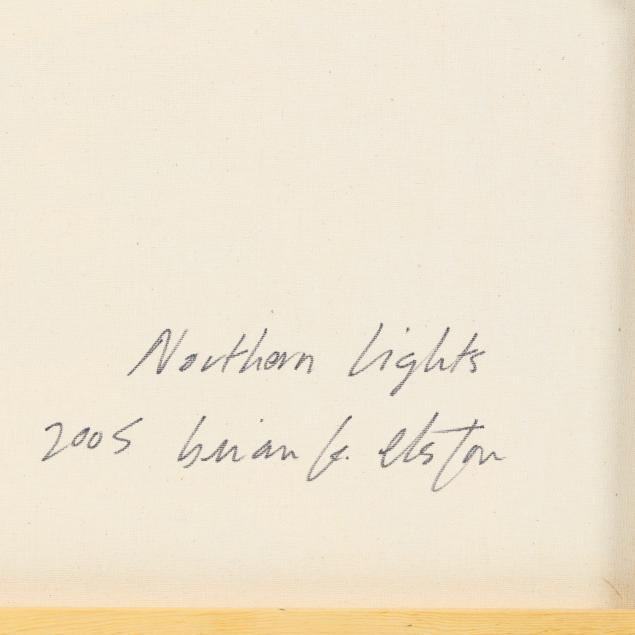 Northern Lights
2005 brian k. elston